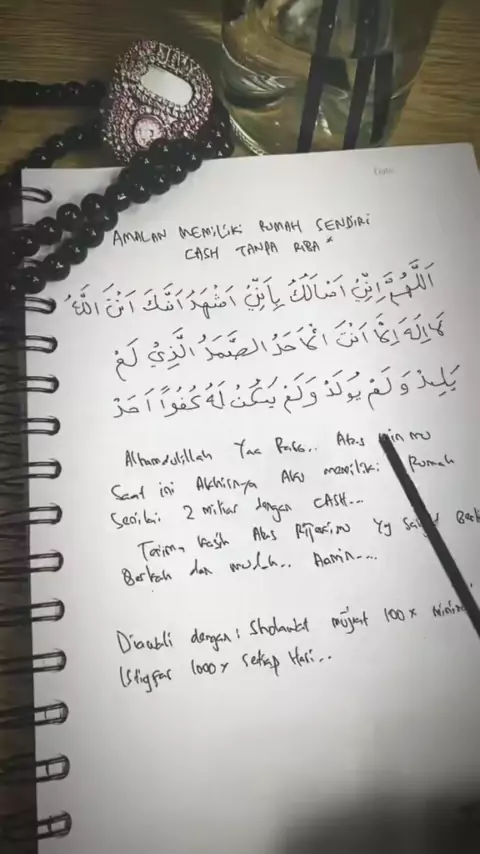 AMALAN MEMILIKI RUMAH SENDIRI
CASH TANPA RIBA*
اَللّٰهُمَّ اِنِّيْ اَسْأَلُكَ بِأَنِّيْ اَشْهَدُ اَنَّكَ اَنْتَ اللّٰهُ
لَا اِلٰهَ اِلَّا اَنْتَ الْاَحَدُ الصَّمَدُ الَّذِيْ لَمْ
يَلِدْ وَلَمْ يُوْلَدْ وَلَمْ يَكُنْ لَهُ كُفُوًا اَحَدْ
Alhamdulillah Yaa Rabb.. Atas mu
Saat ini Akhirnya Aku memiliki Rumah
Senilai 2 miliar dengan CASH...
Terima kasih Atas Rizkimu Yg
Berkah dan mudah.. Aamin....
Diawali dengan: Sholawat 100x
Istigfar 1000x setiap Hari..